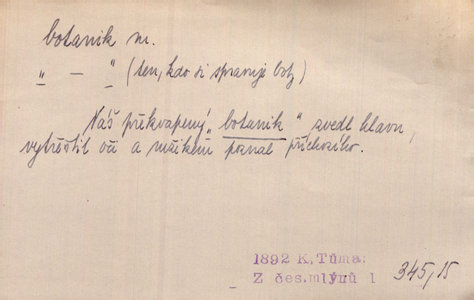 botanik m.
" — " (ten, kdo si spravuje boty)
Náš překvapený „botanik“ zvedl hlavu,
vytřeštil oči a mžikem poznal příchozího.
1892 K. Tůma:
Z čes. mlýnů 1 345,15